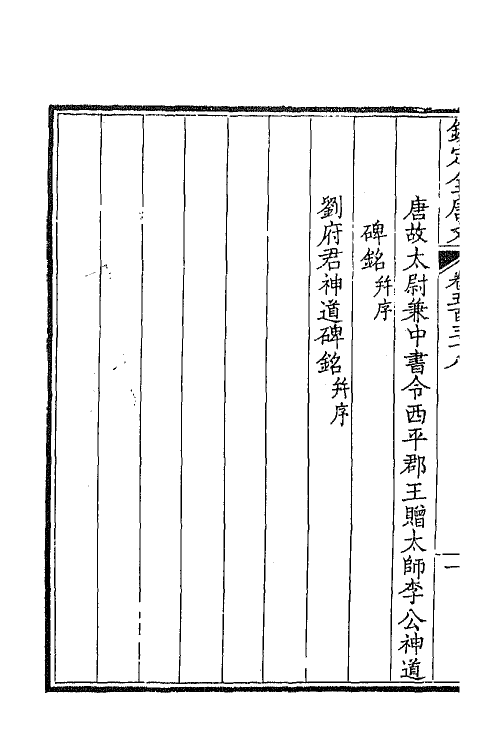 欽定全唐文 卷五百三十八 一
唐故太尉兼中書令西平郡王贈太師李公神道
碑銘并序
劉府君神道碑銘并序